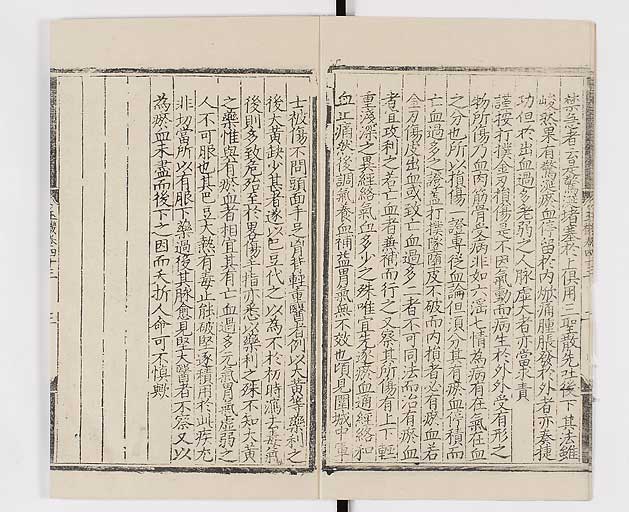 者云是驚涎堵塞於上俱用三聖散先吐後下其法雖
峻然果有驚涎瘀血停留於內焮痛腫脹發於外者亦奏捷
功但於出血過多老弱之人脉虛大者亦當求責
謹按打撲金刃損傷是不因氣動而病生於外外受有形之
物所傷乃血肉筋骨受病非如六淫七情為病有在氣在血
之分也所以損傷一證專從血論但須分其有瘀血停積而
亡血過多之證蓋打撲墜墮皮不破而內損者必有瘀血若
金刃傷皮出血或致亡血過多二者不可同法而治有瘀血
者宜攻利之若亡血者兼補而行之又察其所傷有上下輕
重淺深之異經絡氣血多少之殊唯宜先逐瘀血通經絡和
血止痛然後調氣養血補益胃氣無不效也頃見圍城中軍
士被傷不問頭面手足胷背輕重醫者例以大黃等藥利之
後大黃缺少甚者遂以巴豆代之以為不於初時瀉去毒氣
後則多致危殆至於畧傷手指亦悉以藥利之殊不知大黃
之藥惟與有瘀血者相宜其有亡血過多元氣胃氣虛弱之
人不可服也其巴豆大熱有毒止能破堅逐積用於此疾尤
非切當所以有服下藥過後其脉愈見堅大醫者不察又以
為瘀血未盡而後下之因而夭折人命可不慎歟